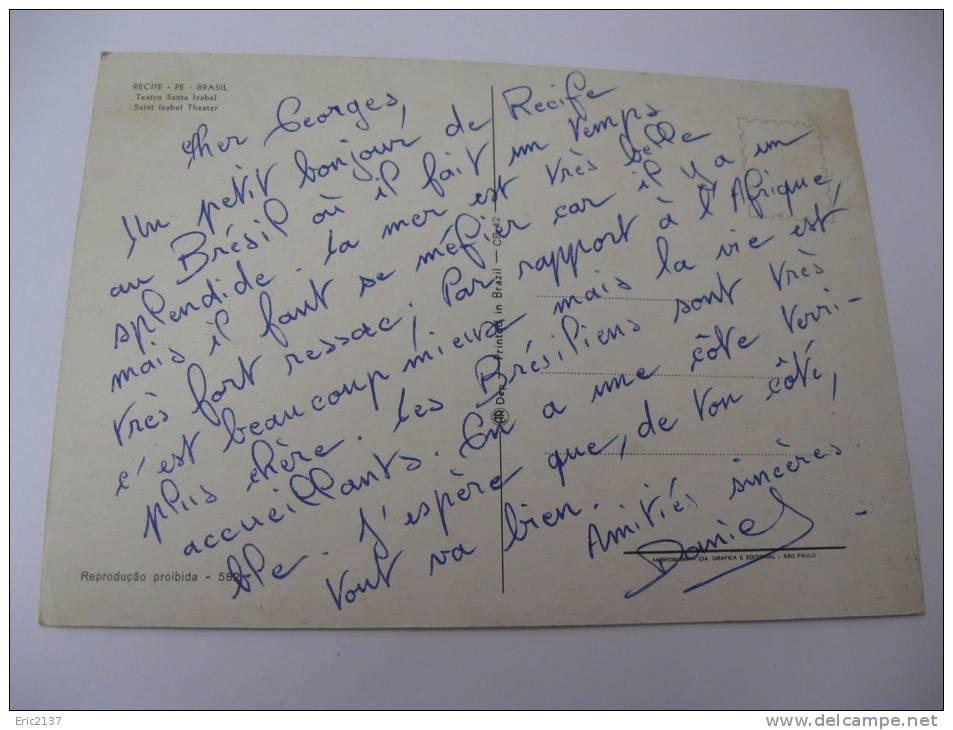 RECIFE - PE - BRASIL
Teatro Santa Izabel
Saint Izabel Theater
Cher Georges,
Un petit bonjour de Recife
au Brésil où il fait un temps
splendide. La mer est très belle
mais il faut se méfier car il y a un
très fort ressac; Par rapport à l'Afrique,
c'est beaucoup mieux mais la vie est
plus chère. Les Brésiliens sont très
accueillants. On a une côte terri-
ble. J'espère que, de ton côté,
tout va bien.
Amitiés sincères.
Daniel
Printed in Brazil
Reprodução proibida
CIA. GRAFICA E EDITORIAL - SÃO PAULO
Eric2137
www.delcampe.net